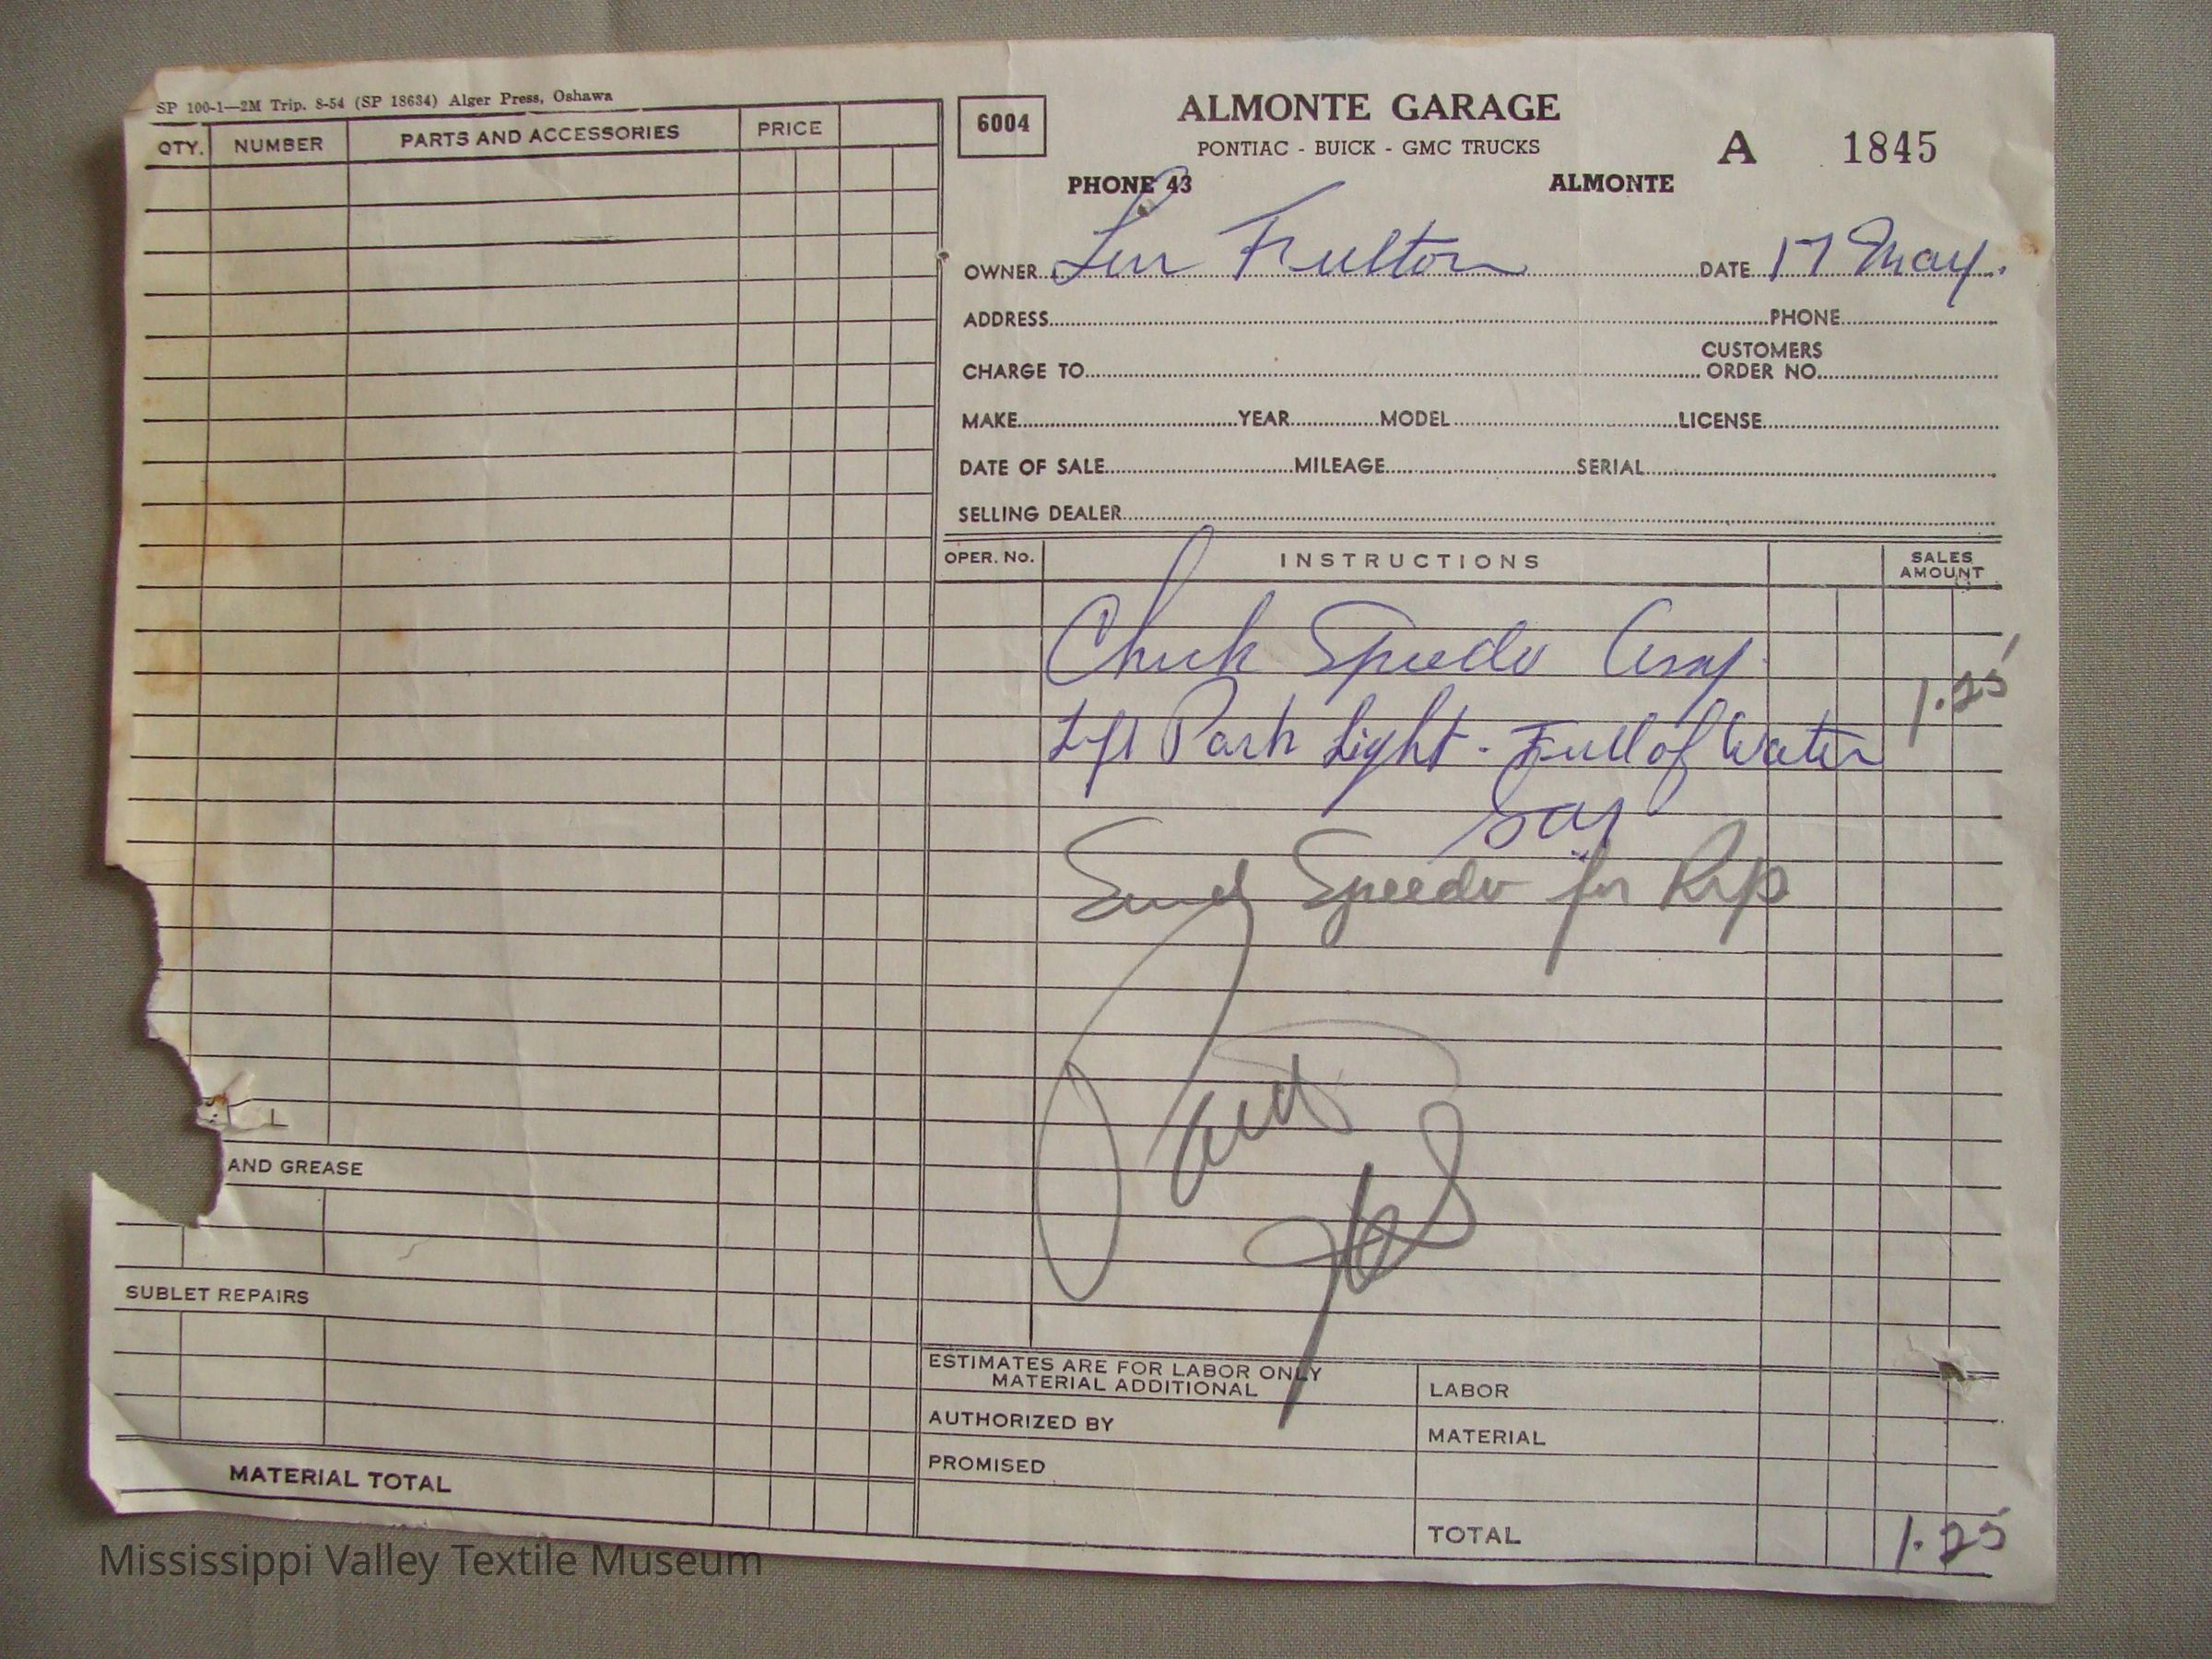 SP 100-1—2M Trip. 8-54 (SP 18634) Alger Press, Oshawa
QTY. NUMBER PARTS AND ACCESSORIES PRICE
AND GREASE
SUBLET REPAIRS
MATERIAL TOTAL
6004
ALMONTE GARAGE
PONTIAC - BUICK - GMC TRUCKS
A 1845
PHONE 43 ALMONTE
OWNER Len Fulton DATE 17 May.
ADDRESS PHONE
CHARGE TO CUSTOMERS ORDER NO.
MAKE YEAR MODEL LICENSE
DATE OF SALE MILEAGE SERIAL
SELLING DEALER
OPER. No. INSTRUCTIONS SALES AMOUNT
Check Speedo Assy. 1.25
Left Park Light - Full of Water
Send Speedo for Rep
ESTIMATES ARE FOR LABOR ONLY
MATERIAL ADDITIONAL
AUTHORIZED BY
PROMISED
LABOR
MATERIAL
TOTAL 1.25
Mississippi Valley Textile Museum